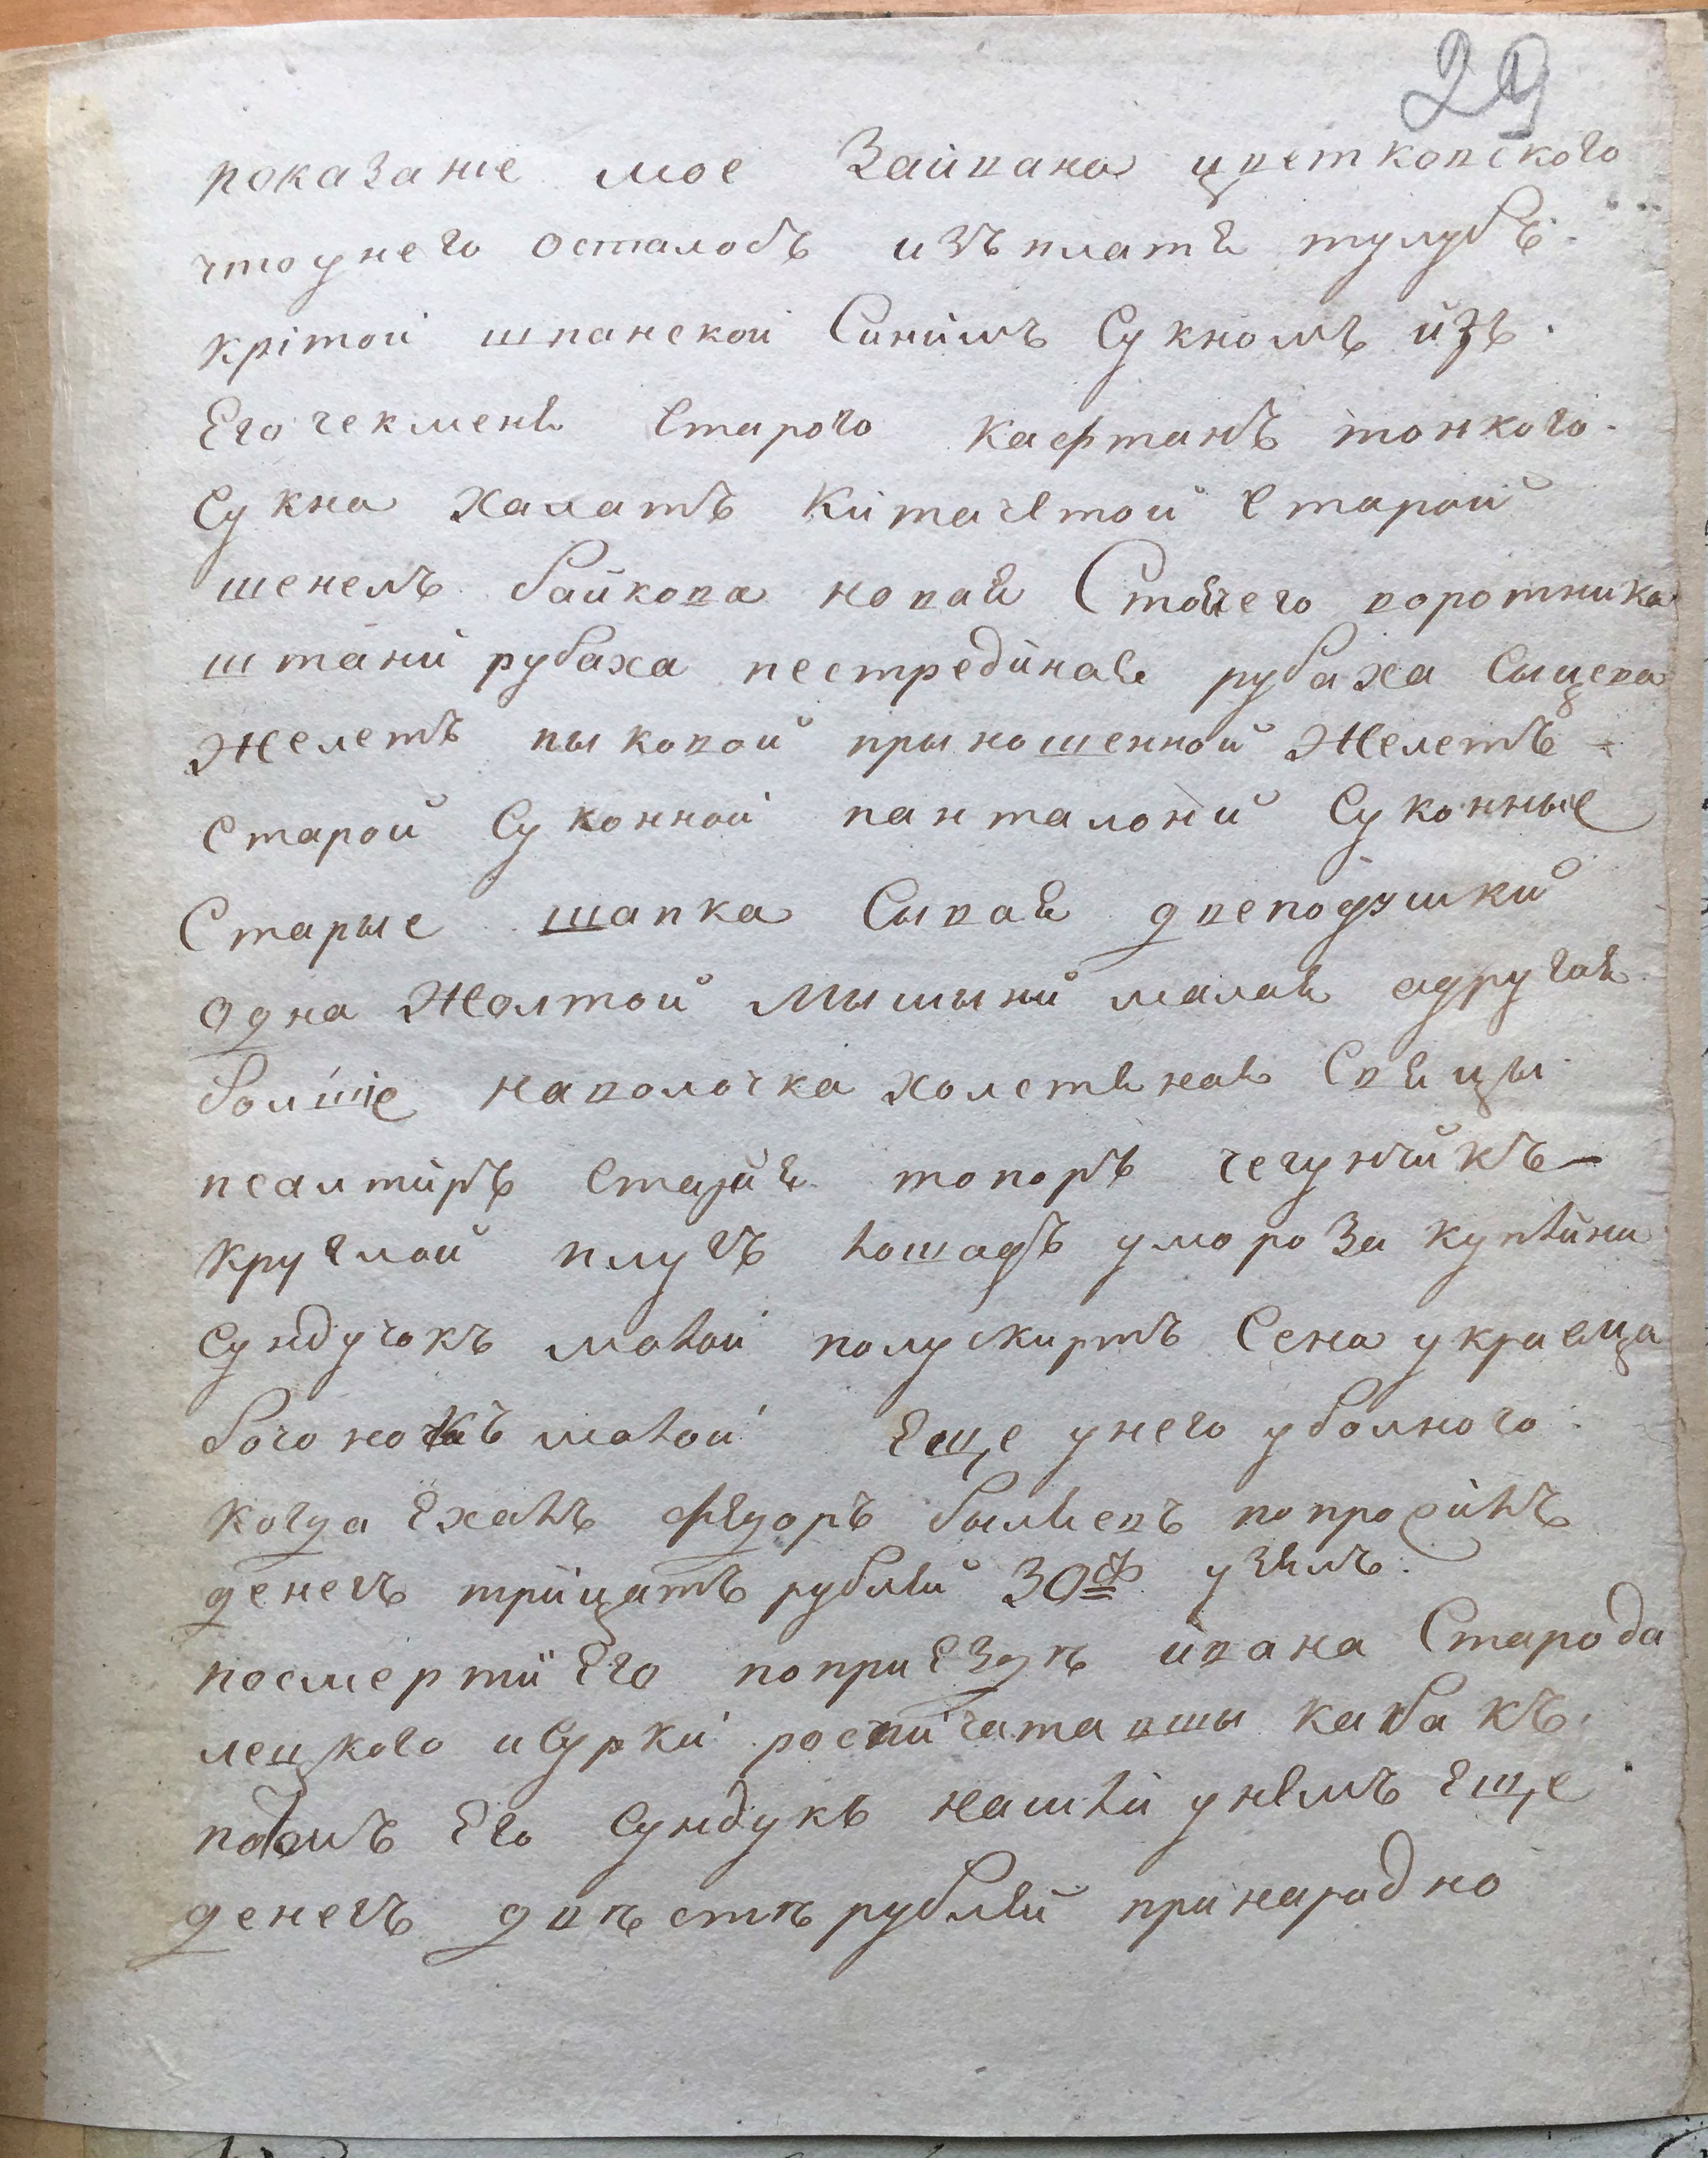 29
показание мое Заивана цветковского
что унего осталось изъ плате тулубъ
крiтой шпанской Синiмъ Сукномъ изъ
Его чекменя Старого кафтанъ тонкого
Сукна халатъ Китаечтой Старой
шенель байкова новая Стоячего воротника
штани рубаха пестрединая рубаха Сицева
Желетъ пыковой прыношенной Желетъ
Старой Суконной панталони Суконные
Старые шапка Сывая двеподушки
Одна Жолтой Мышыни малая адругая
болшiе наволочка холстяная Свяцы
псалтирь Старiя топоръ чегунчикъ
круглой плугъ лошадь умороза куплiни
Сундучокъ малой полускиртъ Сена украсица
бочоночкъ малой Еще унего уболного
когда Ехалъ фядоръ былаевъ попросилъ
денегъ трiцать рублей 30 узялъ
посмерти Его поприездѣ ивана Старода
лецкого иСурки роспичатавшы кабакъ
потомъ Его Сундукъ нашлi унямъ Еще
денегъ двѣстѣ рублей принародно